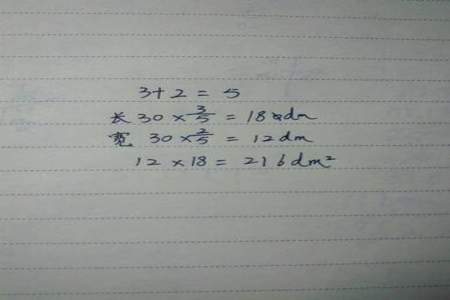 3+2=5
长 30×3/5=18dm
宽 30×2/5=12dm
12×18=216dm²